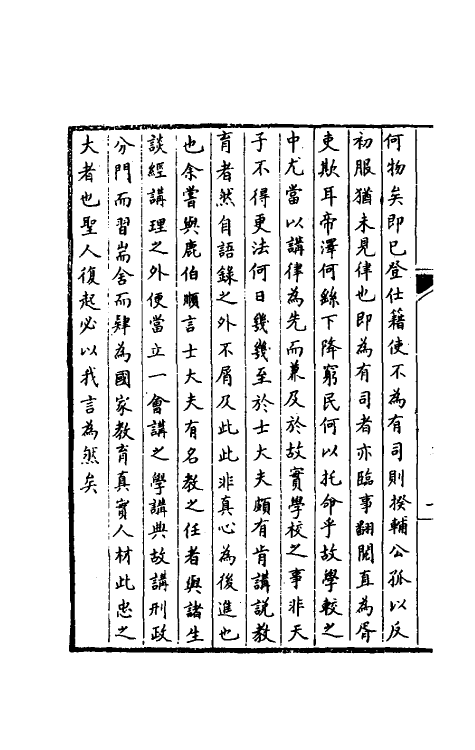 何物矣即已登仕籍使不為有司則揆輔公孤以反
初服猶未見律也即為有司者亦臨事翻閱直為胥
吏欺耳帝澤何繇下降窮民何以托命乎故學較之
中尤當以講律為先而兼及於故實學校之事非天
子不得更法何日幾幾至於士大夫頗有肯講說教
育者然自語錄之外不屑及此此非真心為後進也
也余嘗與鹿伯順言士大夫有名教之任者與諸生
談經講理之外便當立一會講之學講典故講刑政
分門而習耑舍而肄為國家教育真實人材此忠之
大者也聖人復起必以我言為然矣